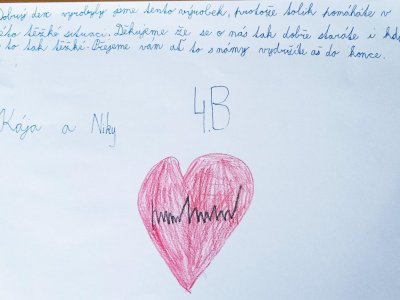 den vyrobyly jsme tento výrobek, protože tolik pomáháte v
této těžké situaci. Děkujeme že se o nás tak dobře staráte i když
to tak těžké. Přejeme vam ať to s námy vydržíte aš do konce.
4.B
Kája a Niky